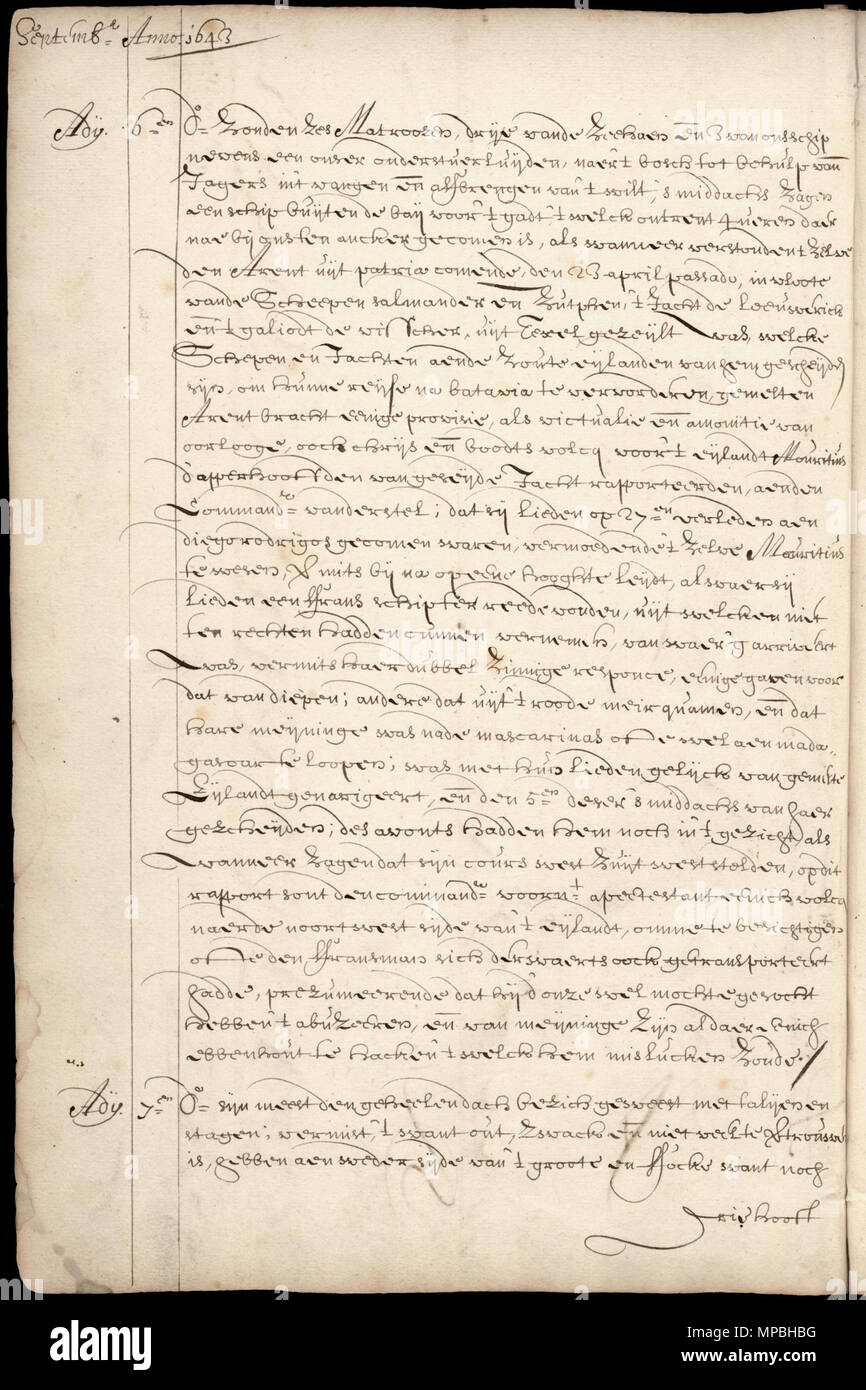 Septemb.r Anno: 1643
Ady. 6en do zonden zes Matroosen, drije vande Zeehaen en 3 van ons schip
nevens een onser onderstuerluijden, naer't bosch tot behulp van
Jagers int vangen en afbrengen van't wilt, s middachs zagen
een schip buijten de baij voor't gadt, 't welck ontrent 4 uren daer
nae bij onsten ancker gecomen is, als wanneer verstonden 't zelve
den Arent uijt patria comende, den 23 april passado, in vloote
vande Scheepen salmander en Zutphen, 't Jacht de Leeuwerick
en 't galiodt de visscher, uijt Texel gezeijlt was, welcke
Schepen en Jachten aende Zoute eijlanden van hem gescheijden
sijn, om hunne reijse na batavia te vervorderen, gemelten
Arent bracht eenige provisie, als victualie en amonitie van
oorlooge, oock chrijs en boodts volcq voor't eijlandt Mauritius
d'apperhooffden van geseijde Jacht rapporteerden, aenden
Commandr vanderstel; dat sij lieden op 27en verleden aen
diego rodrigos gecomen waren, vermoedende 't zelve Mauritius
te wesen, mits bij na op eene hooghte leijdt, alwaer sij
lieden een ffrans schip ter reede vonden, uijt welcken niet
ten rechten hadden cunnen vernemen, van waer g'arriveert
was, vermits haer dubbel zinnige responce, eenige gaven voor
dat van diepen; andere dat uijt 't roode meir quamen, en dat
hare meijninge was nade mascarinas ofte wel aen mada-
gascar te loopen; was met hun lieden gelijck van gemelte
Eijlandt genavigeert, en den 5en deser s middachs van haer
gescheijden; des avonts hadden hem noch in't gezicht, als
wanneer zagen dat sijn cours west zuijt west stelden, op dit
rapport sont den commandr voornt a pectestant eenich volcq
naerde noortwest sijde van't eijlandt, omme te besichtigen
ofte den ffransman sich derwaerts oock getransporteert
hadde, prezumeerende dat hij d'onze wel mochte gesocht
hebben 't abuzeeren, en van meijninge zijn aldaer eenich
ebbenhout te hacken 't welck hem mislucken zoude.
Ady. 7en do sijn meest den geheelen dach bezich geweest met talijen en
stagen; vermits, 't want out, zwack en niet veel te betrouwen
is, hebben aen weder sijde van't groote en ffocke want noch
drie hooft
alamy
alamy
Image ID: MPBHBG
www.alamy.com